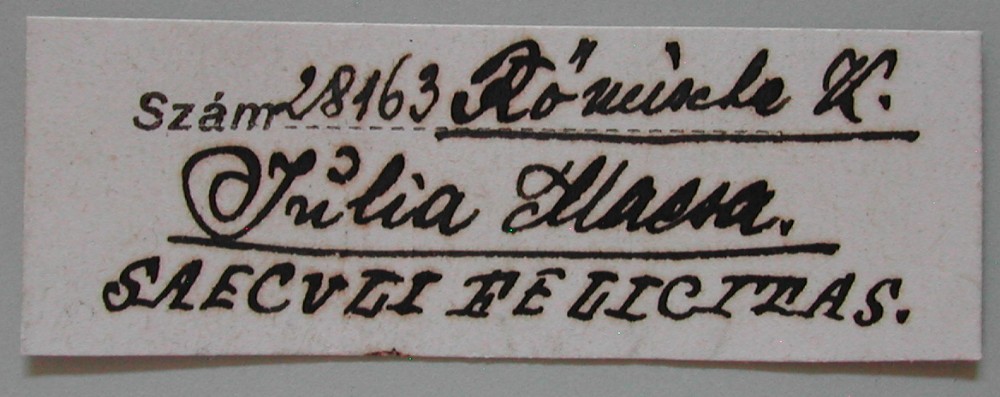 Szám 28163 Rőmische K.
Jŭlia Maesa.
SAECVLI FELICITAS.